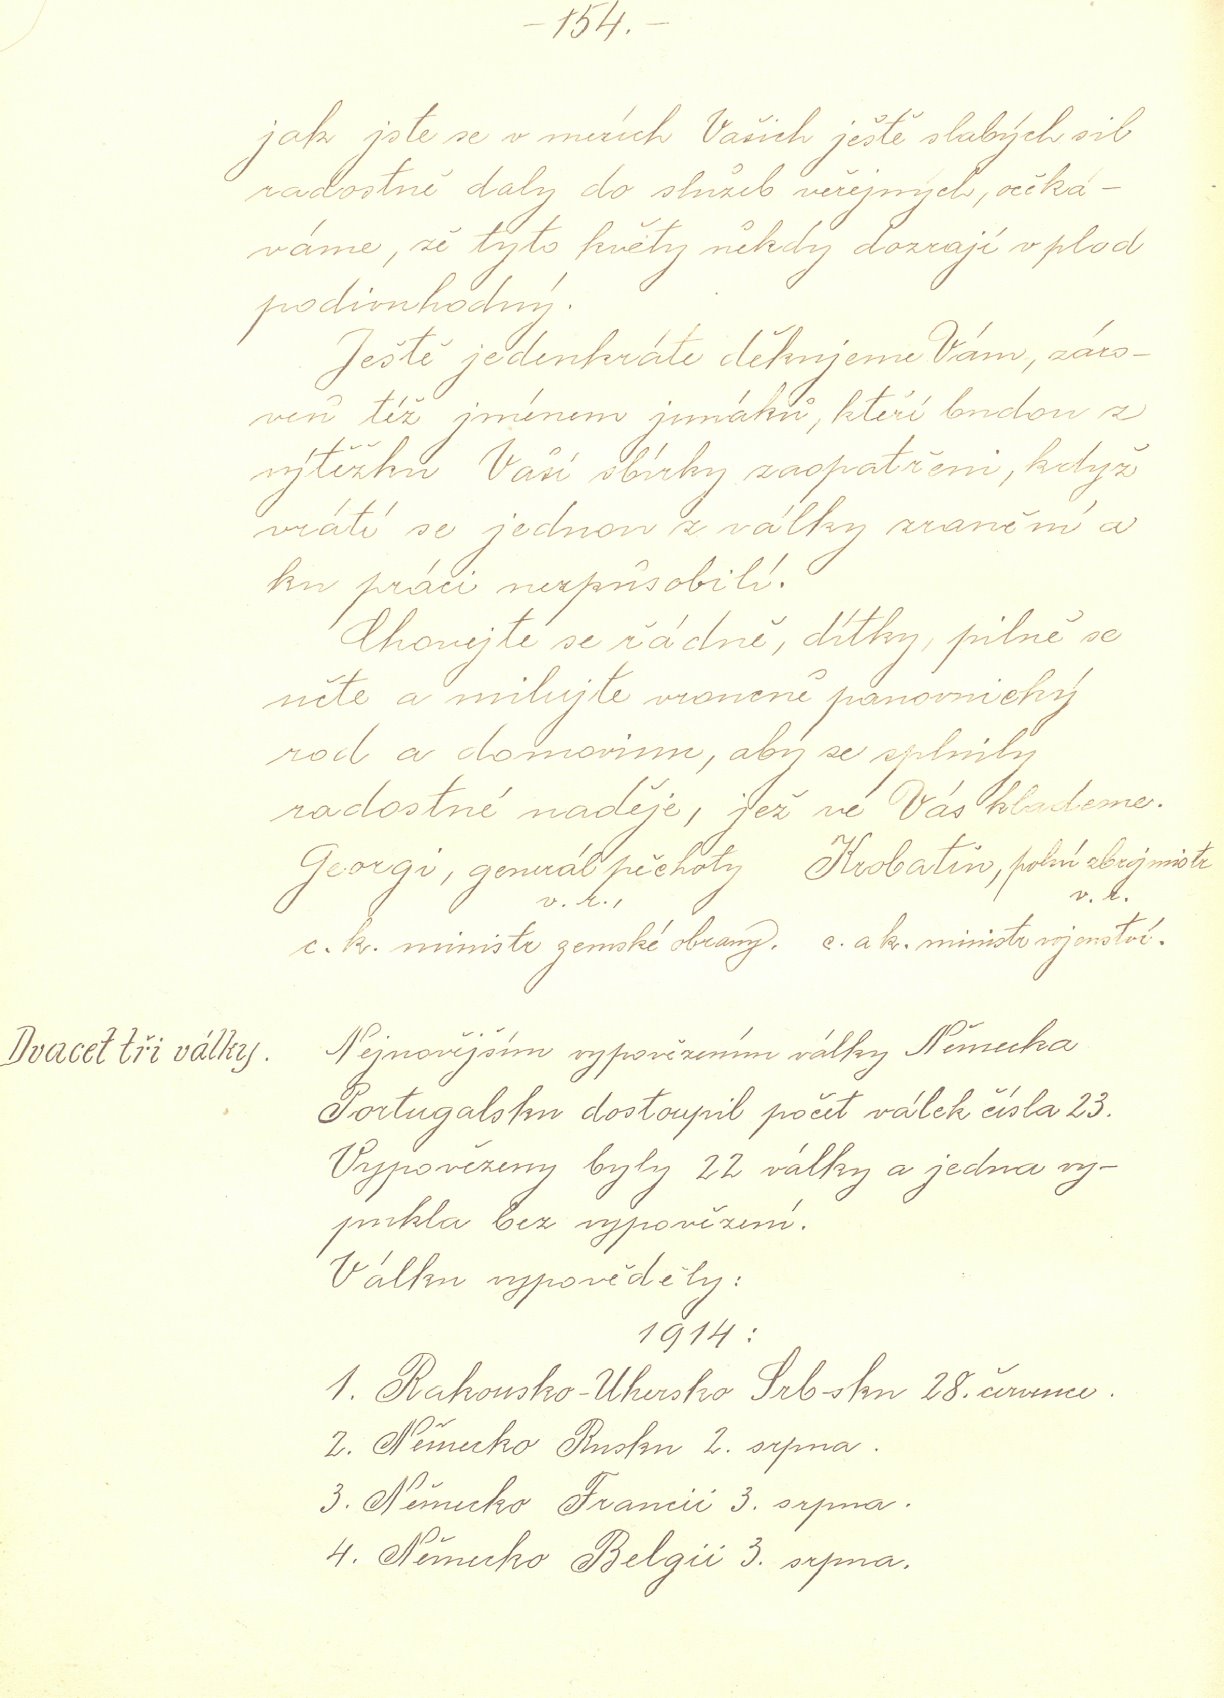 - 154. -
jak jste se v mezích Vašich ještě slabých sil
radostně daly do služeb veřejných, očeká-
váme, že tyto květy někdy dozrají v plod
podivuhodný.
Ještě jedenkráte děkujeme Vám, záro-
veň též jménem junáků, kteří budou z
výtěžku Vaší sbírky zaopatřeni, když
vrátí se jednou z války zranění a
ku práci nezpůsobilí.
Chovejte se řádně, dítky, pilně se
učte a milujte vroucně panovnický
rod a domovinu, aby se splnily
radostné naděje, jež ve Vás klademe.
Georgi, generál pěchoty Krobatin, polní zbrojmistr
v. r., v. r.
c. k. ministr zemské obrany. c. a k. ministr vojenství.
Dvacet tři války. Nejnovějším vypovězením války Německa
Portugalsku dostoupil počet válek čísla 23.
Vypovězeny byly 22 války a jedna vy-
pukla bez vypovězení.
Válku vypověděly:
1914:
1. Rakousko-Uhersko Srbsku 28. července.
2. Německo Rusku 2. srpna.
3. Německo Francii 3. srpna.
4. Německo Belgii 3. srpna.